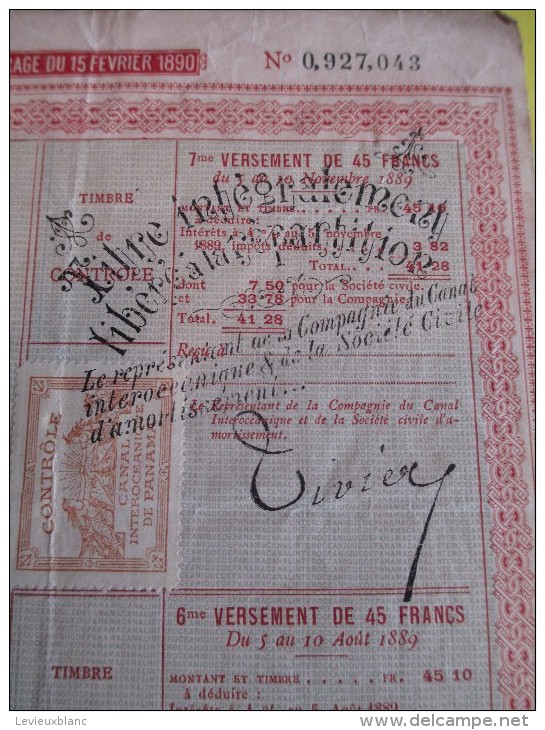 CAGE DU 15 FÉVRIER 1890
Nº 0,927,043
TIMBRE
de
CONTRÔLE
7me VERSEMENT DE 45 FRANCS
du 5 au 10 Novembre 1889
MONTANT ET TIMBRE . . . FR. 45 10
à déduire:
Intérêts à 4 % au 5 novembre
1889, impôts déduits, 3 82
TOTAL. . . 41 28
dont 7,50 pour la Société civile.
et 33 78 pour la Compagnie
Total. 41 28
Reçu
Le Représentant de la Compagnie du Canal
Interocéanique et de la Société civile d'a-
mortissement.
Titre intégralement
libéré à la répartition
Le représentant de la Compagnie du Canal
interocéanique & de la Société Civile
d'amortissement...
CONTRÔLE
CANAL
INTEROCÉANIQUE
DE PANAMA
6me VERSEMENT DE 45 FRANCS
Du 5 au 10 Août 1889
TIMBRE
MONTANT ET TIMBRE . . . . . FR. 45 10
à déduire :
Intérêts à 4 % au 5 Août 1889
Levieuxblanc
www.delcampe.net